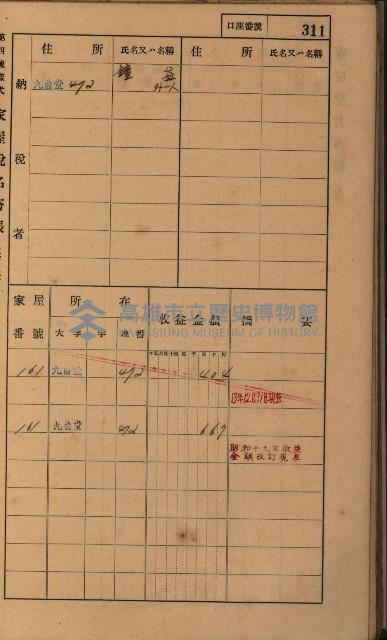 口座番號 311
第四號樣式 家屋稅名寄帳
納稅者
住所 氏名又ハ名稱 住所 氏名又ハ名稱
九曲堂 472 外一人
家屋番號 所在 收益金額 摘要
大字 字 地番
高雄市立歷史博物館
KAOHSIUNG MUSEUM OF HISTORY
161 九曲堂 472 404
161 九曲堂 472 667
昭和十九年收益
金額改訂現在